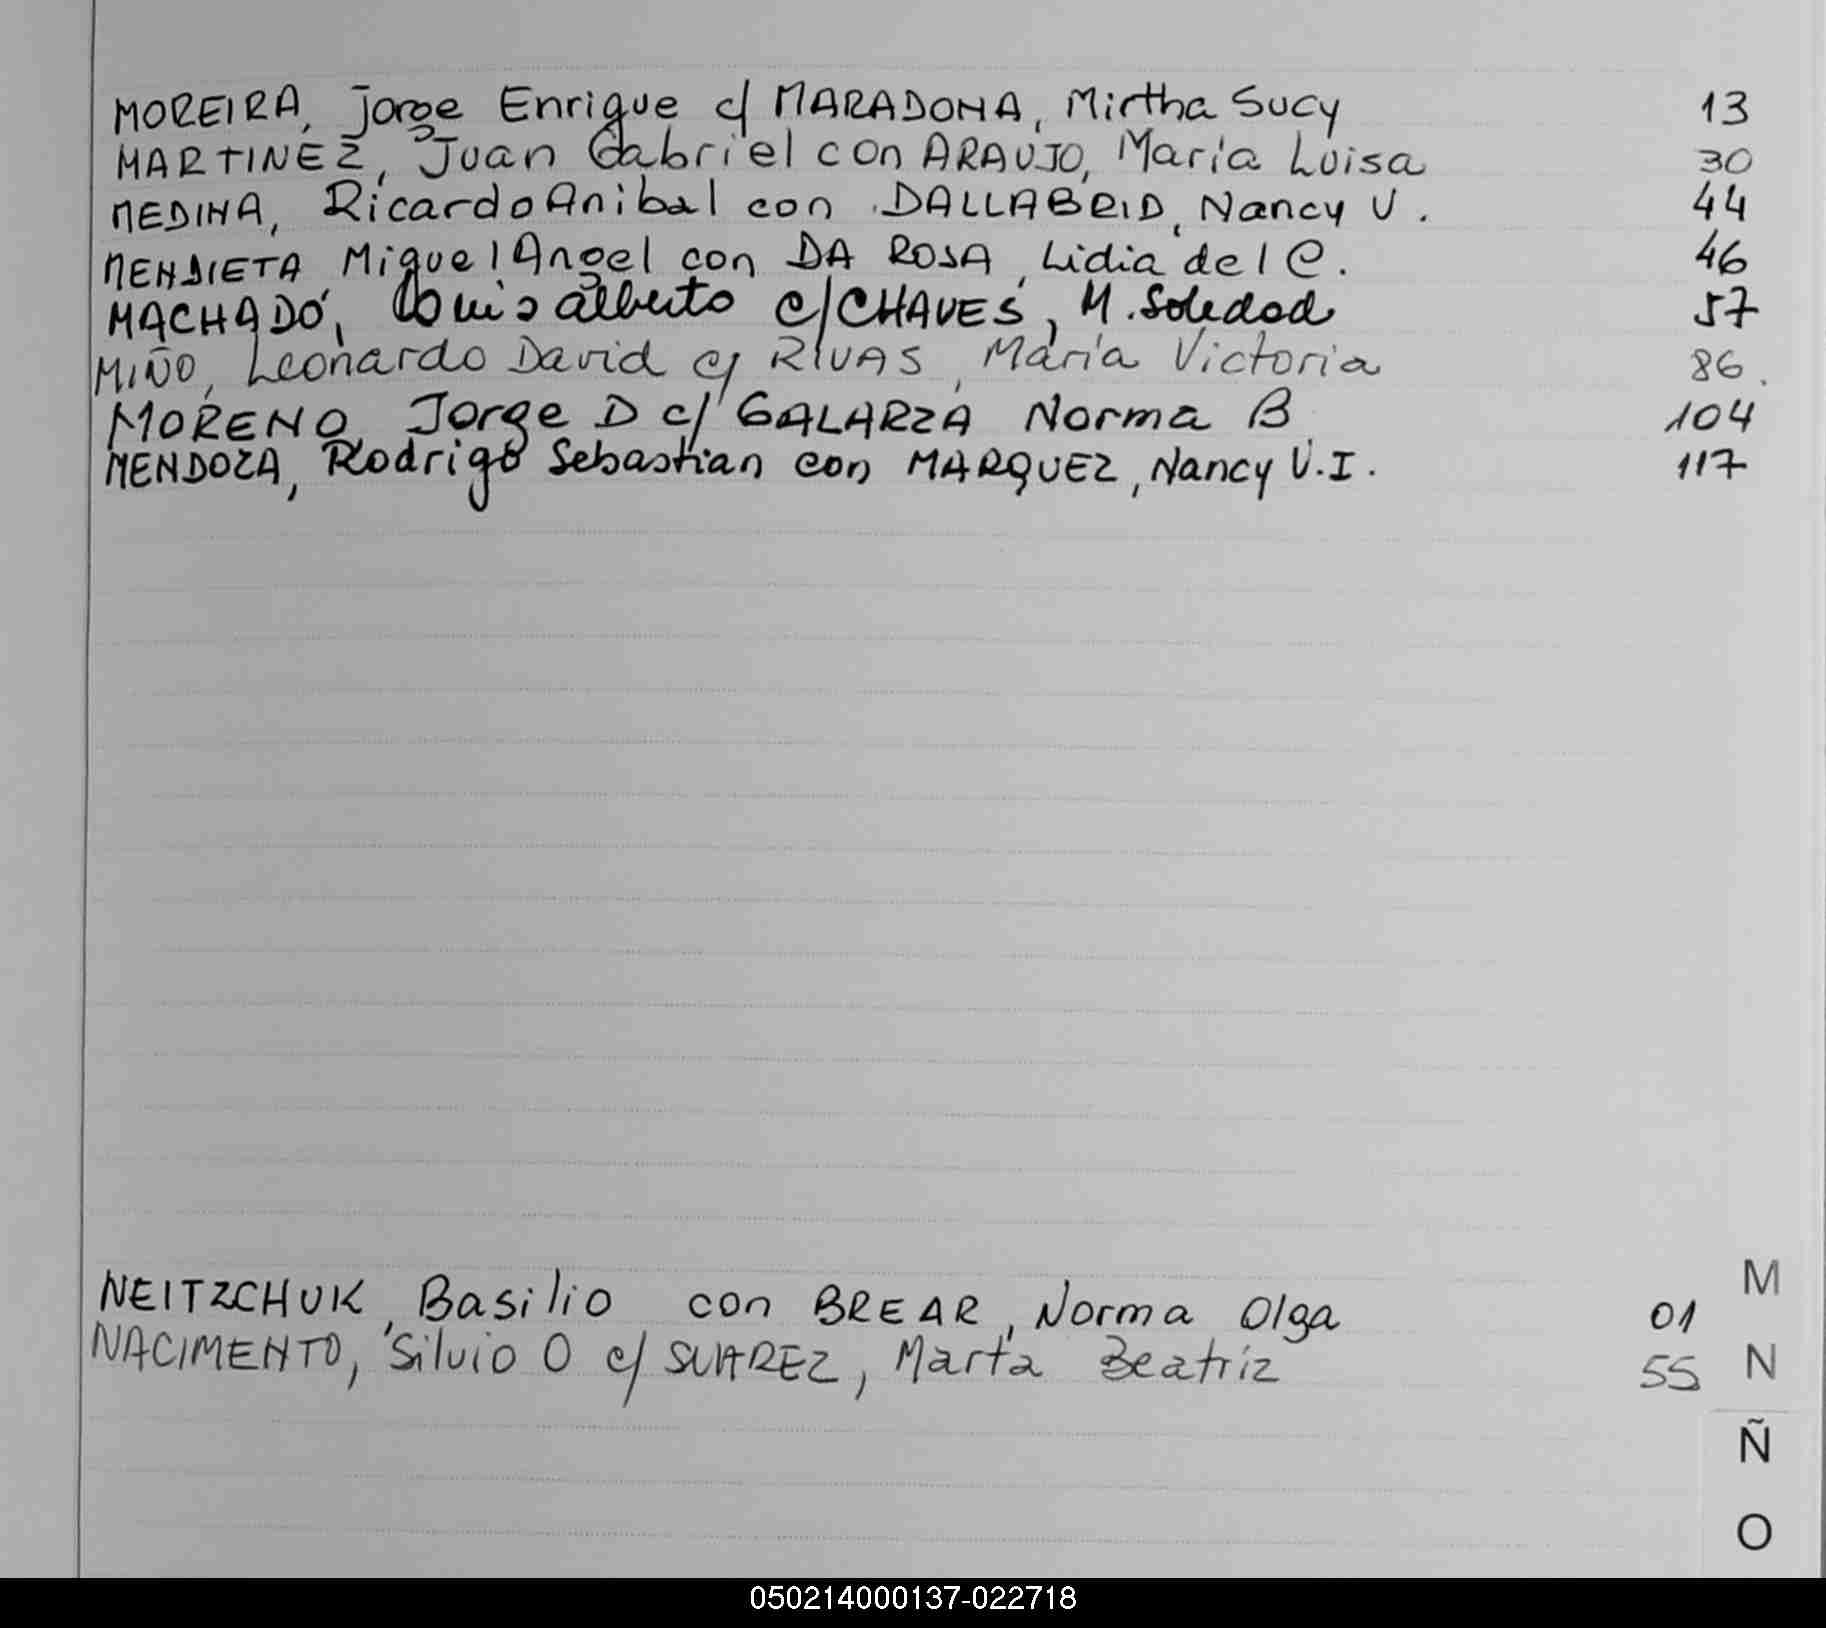 MOREIRA, Jorge Enrique c/ MARADONA, Mirtha Sucy 13
MARTINEZ, Juan Gabriel con ARAUJO, María Luisa 30
MEDINA, Ricardo Anibal con DALLABRID, Nancy V. 44
MENDIETA Miguel Angel con DA ROSA, Lidia del C. 46
MACHADO, Luis alberto c/ CHAVES, M. Soledad 57
MIÑO, Leonardo David c/ RIVAS, María Victoria 86.
MORENO Jorge D c/ GALARZA Norma B 104
MENDOZA, Rodrigo Sebastian con MARQUEZ, Nancy V.I. 117
M
NEITZCHUK, Basilio con BREAR, Norma Olga 01
NACIMENTO, Silvio O c/ SUAREZ, Marta Beatríz 55 N
Ñ
O
050214000137-022718